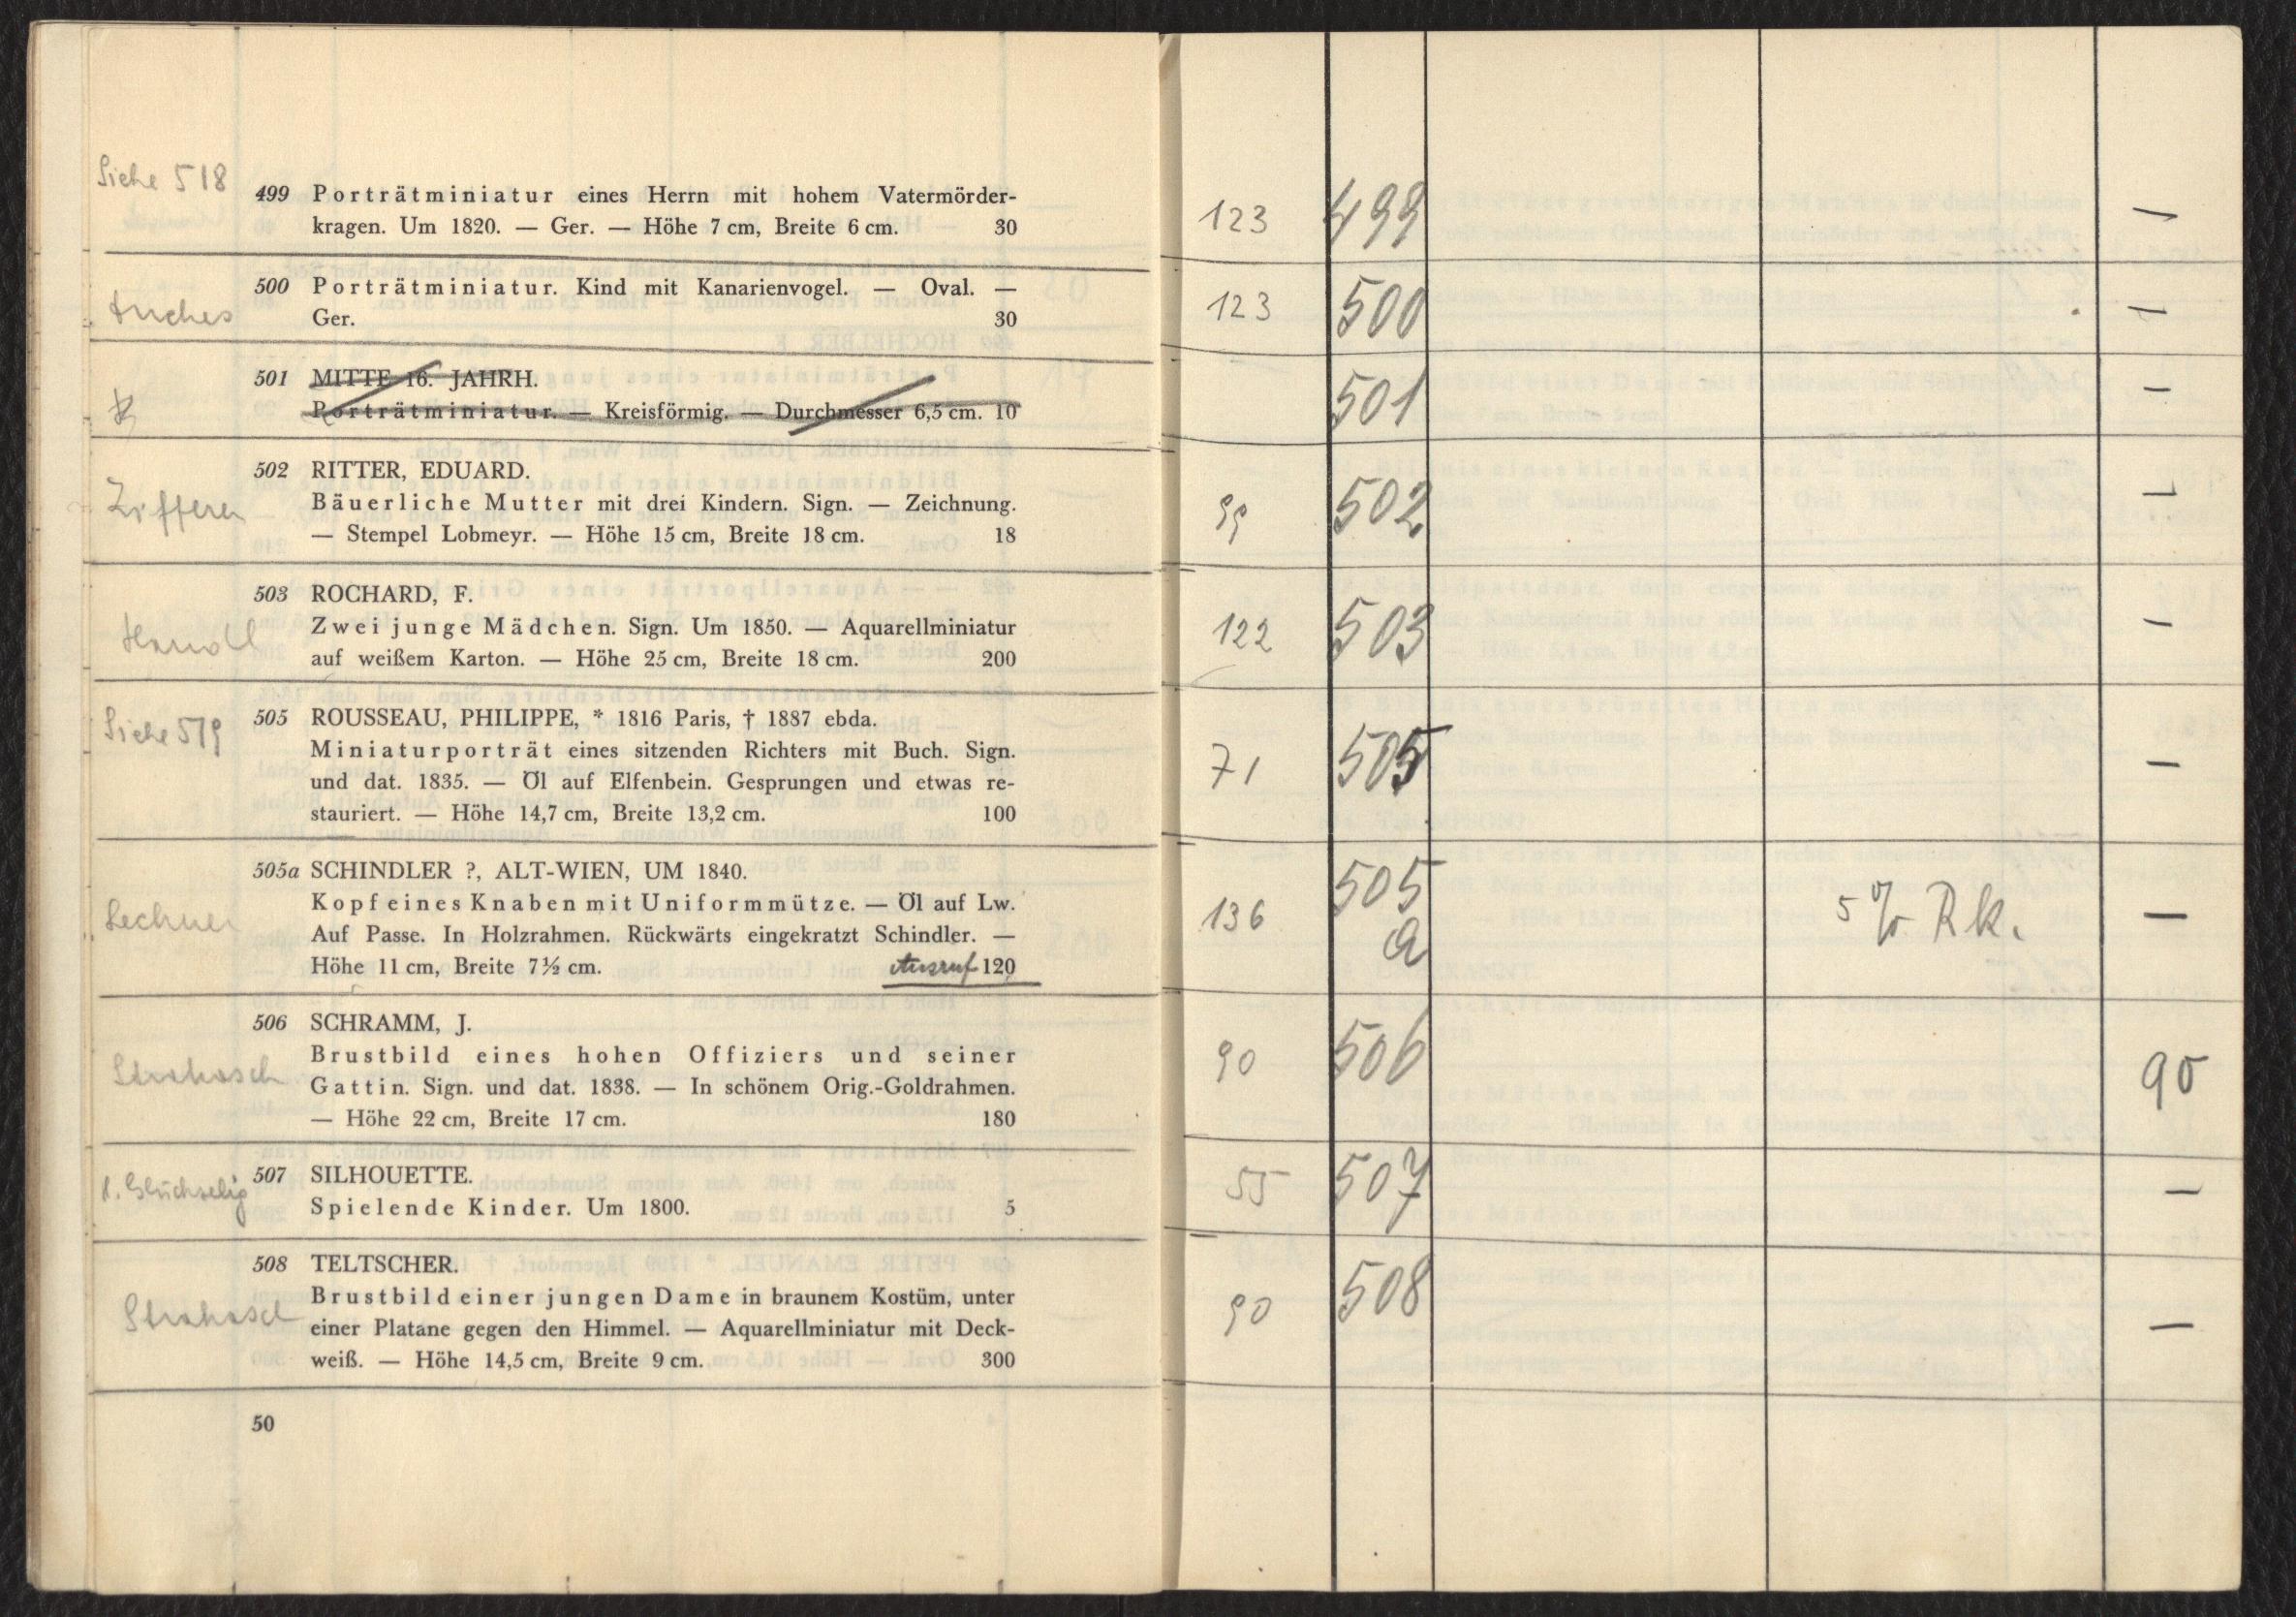 Siehe 518
499 Porträtminiatur eines Herrn mit hohem Vatermörder-
kragen. Um 1820. — Ger. — Höhe 7 cm, Breite 6 cm. 30
500 Porträtminiatur. Kind mit Kanarienvogel. — Oval. —
Ger. 30
501 MITTE 16. JAHRH.
Porträtminiatur. — Kreisförmig. — Durchmesser 6,5 cm. 10
502 RITTER, EDUARD.
Bäuerliche Mutter mit drei Kindern. Sign. — Zeichnung.
— Stempel Lobmeyr. — Höhe 15 cm, Breite 18 cm. 18
503 ROCHARD, F.
Zwei junge Mädchen. Sign. Um 1850. — Aquarellminiatur
auf weißem Karton. — Höhe 25 cm, Breite 18 cm. 200
Siehe 519
505 ROUSSEAU, PHILIPPE, * 1816 Paris, † 1887 ebda.
Miniaturporträt eines sitzenden Richters mit Buch. Sign.
und dat. 1835. — Öl auf Elfenbein. Gesprungen und etwas re-
stauriert. — Höhe 14,7 cm, Breite 13,2 cm. 100
Lechner
505a SCHINDLER ?, ALT-WIEN, UM 1840.
Kopf eines Knaben mit Uniformmütze. — Öl auf Lw.
Auf Passe. In Holzrahmen. Rückwärts eingekratzt Schindler. —
Höhe 11 cm, Breite 7½ cm. Ausruf 120
506 SCHRAMM, J.
Strakosch
Brustbild eines hohen Offiziers und seiner
Gattin. Sign. und dat. 1838. — In schönem Orig.-Goldrahmen.
— Höhe 22 cm, Breite 17 cm. 180
Glückselig
507 SILHOUETTE.
Spielende Kinder. Um 1800. 5
508 TELTSCHER.
Strakosch
Brustbild einer jungen Dame in braunem Kostüm, unter
einer Platane gegen den Himmel. — Aquarellminiatur mit Deck-
weiß. — Höhe 14,5 cm, Breite 9 cm. 300
50
123 499 —
123 500 —
501 —
99 502 —
122 503 —
71 505 —
136 505 a 5% Rk. —
90 506 90
55 507 —
90 508 —